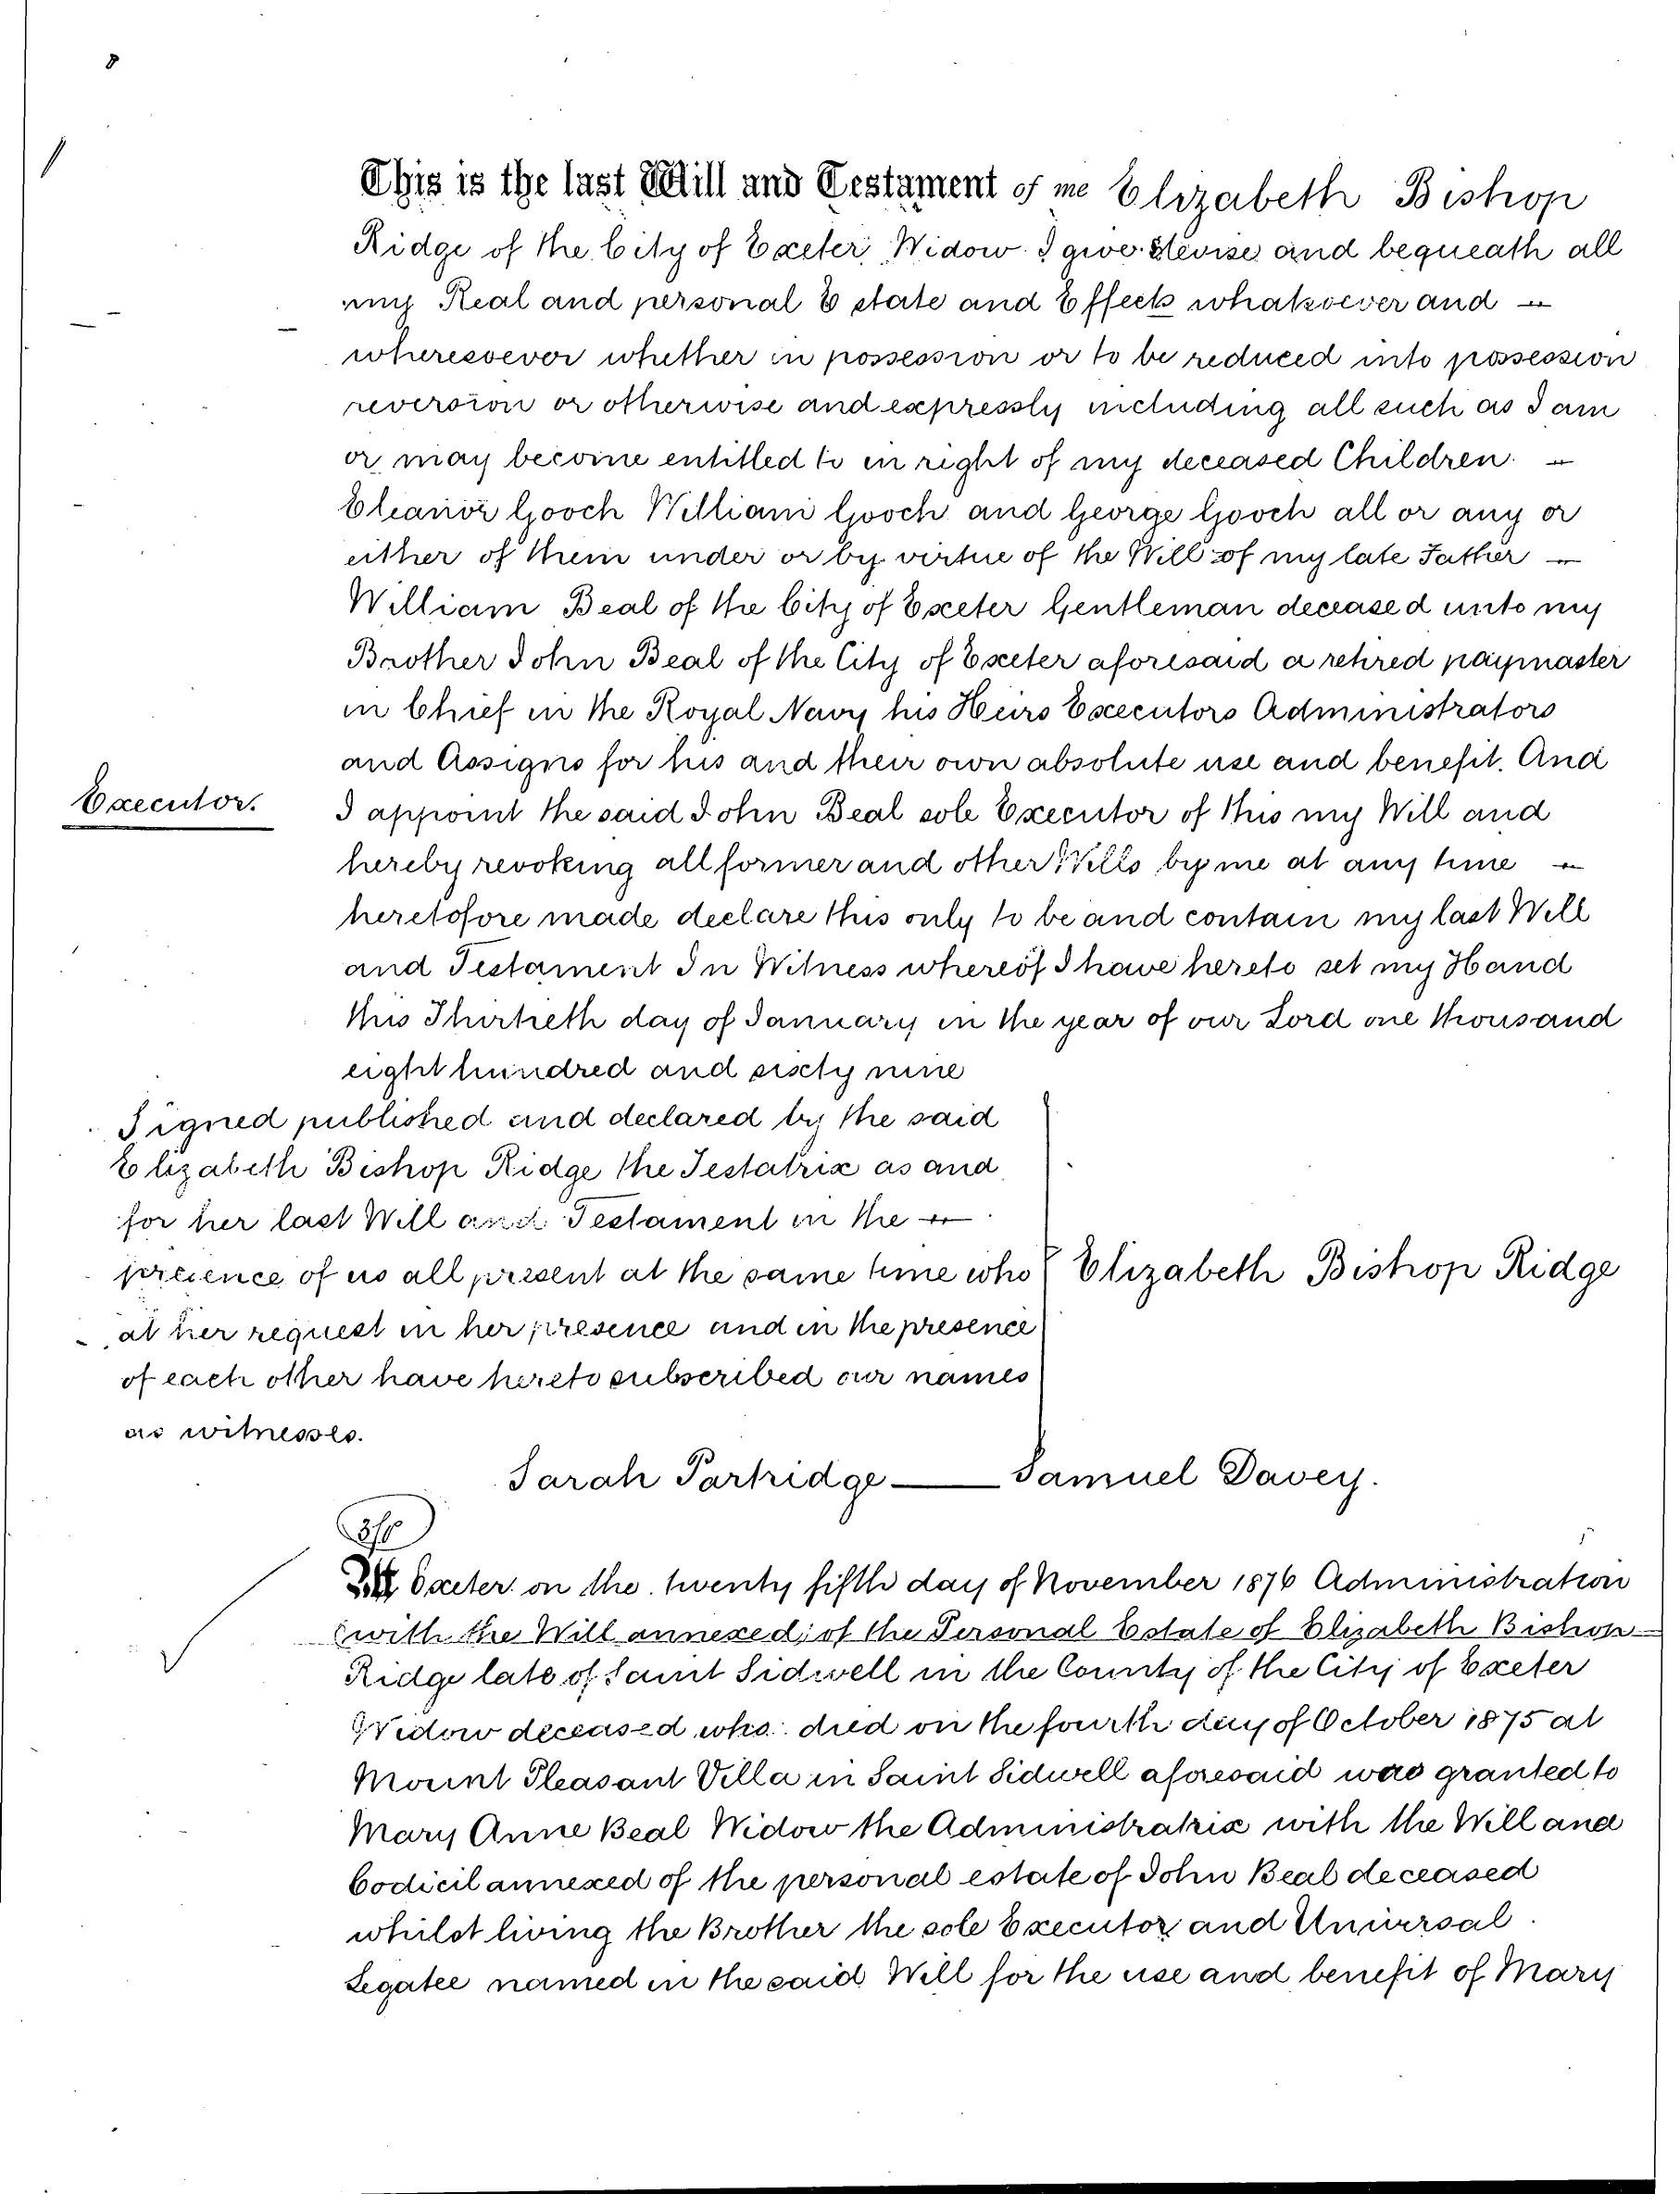 This is the last Will and Testament of me Elizabeth Bishop
Ridge of the City of Exeter Widow I give devise and bequeath all
my Real and personal Estate and Effects whatsoever and
wheresoever whether in possession or to be reduced into possession
reversion or otherwise and expressly including all such as I am
or may become entitled to in right of my deceased Children
Eleanor Gooch William Gooch and George Gooch all or any or
either of them under or by virtue of the Will of my late Father
William Beal of the City of Exeter Gentleman deceased unto my
Brother John Beal of the City of Exeter aforesaid a retired paymaster
in Chief in the Royal Navy his Heirs Executors Administrators
and Assigns for his and their own absolute use and benefit. And
Executor.
I appoint the said John Beal sole Executor of this my Will and
hereby revoking all former and other Wills by me at any time
heretofore made declare this only to be and contain my last Will
and Testament In Witness whereof I have hereto set my Hand
this Thirtieth day of January in the year of our Lord one thousand
eight hundred and sixty nine
Signed published and declared by the said
Elizabeth Bishop Ridge the Testatrix as and
for her last Will and Testament in the
presence of us all present at the same time who
at her request in her presence and in the presence
of each other have hereto subscribed our names
as witnesses.
Elizabeth Bishop Ridge
Sarah Partridge — Samuel Davey.
At Exeter on the twenty fifth day of November 1876 Administration
(with the Will annexed) of the Personal Estate of Elizabeth Bishop
Ridge late of Saint Sidwell in the County of the City of Exeter
Widow deceased who died on the fourth day of October 1875 at
Mount Pleasant Villa in Saint Sidwell aforesaid was granted to
Mary Anne Beal Widow the Administratrix with the Will and
Codicil annexed of the personal estate of John Beal deceased
whilst living the Brother the sole Executor and Universal
Legatee named in the said Will for the use and benefit of Mary